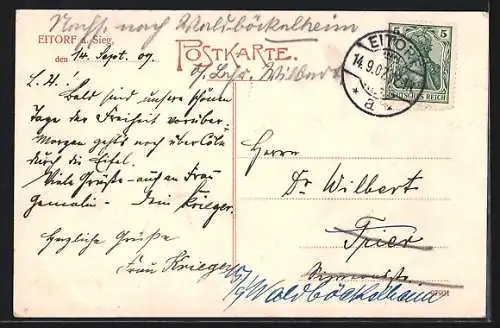 Nachs. nach Waldböckelheim
EITORF a. Sieg.
POSTKARTE.
den 14. Sept. 09.
b/ Lehr. Wilbert
5 5
EITORF
14.9.07
* a *
DEUTSCHES REICH
L. H.!
Bald sind unsere schönen
Tage der Freiheit vorüber.
Morgen gehts noch über Cöln
durch die Eifel.
Viele Grüße - auch an Frau
Gemalin - Dein Krieger.
Herzliche Grüße
Frau Krieger
Herrn
Dr. Wilbert
Trier
Waldböckelheim